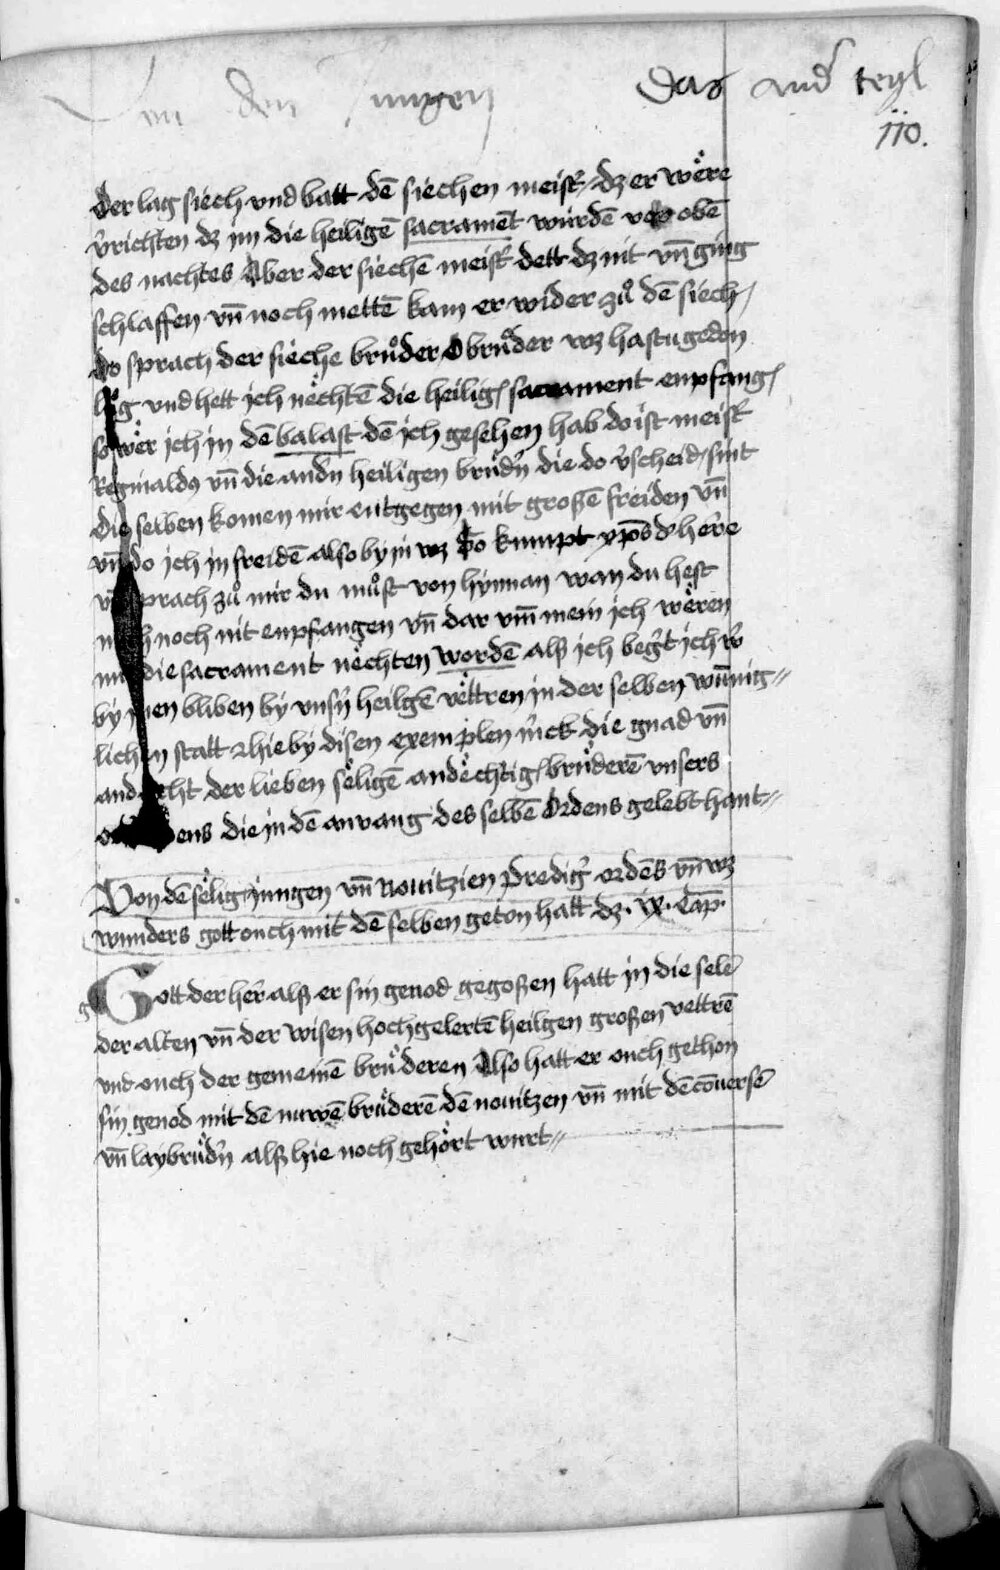 Von den Jungen Das and teyl
110.
Der lag siech vnd batt dē siechen meist dz er wëre
v̉richten dz jm die heiligē sacramēt wurdē obē
des nachtes Aber der siechē meist dett dz nit vn̄ ging
schlaffen vn̄ noch mettē kam er wider zuͦ dē siech
Do sprach der sieche bruͦder O bruͦder wz hastu gedon
vnd hett jch nechtē die heilig sacrament enpfang
so wër jch jn dē balast dē jch gesehen hab do ist meist
Reginaldꝰ vn̄ die andn̉ heiligen bruͤdn̉ die do v̉scheid sint
Die selben komen mir entgegen mit großē freiden vn̄
vn̄ do jch jn freidē also by jn wz So kumpt xp̄s d' here
prach zuͦ mir du muͦst von hynnan wan du hest
noch nit enpfangen vn̄ dar vm̄ mein jch wëren
die sacrament nëchten wordē alß jch beg't jch
by bliben by vnsn̉ heilgē vëttren jn der selben wun̄ig
lich statt hie by disen exemplen m'ck die gnad vn̄
and cht der lieben sëligē andëchtig bruͤderē vnsers
ens die jn dē anvang des selbē Ordens gelebt hant
Von dē sëlig jungen vn̄ Nouitzien predig' ordēs vn̄ wz
wunders gott ouch mit dē selben geton hatt dz . cap̄.
Gott der her alß er sin genod gegoßen hatt jn die selē
der alten vn̄ der wisen hochgelertē heilgen großen vettrē
vnd ouch der gemeinē bruͤderen Also hatt er ouch gethon
sin genod mit dē nuwē bruͤderē dē nouitzen vn̄ mit dē cōuersē
vn̄ laybruͤdn̉ alß hie noch gehört wurt